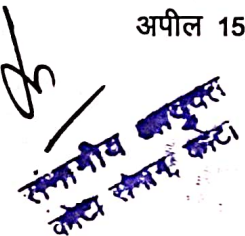 अपील 15
संभागीय आयुक्त
कोटा संभाग कोटा